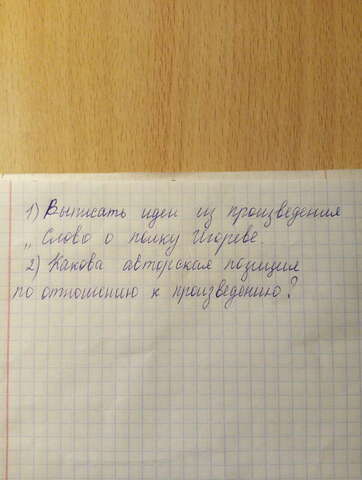 1) Выписать идеи из произведения
„ Слово о полку Игореве
2) Какова авторская позиция
по отношению к произведению?